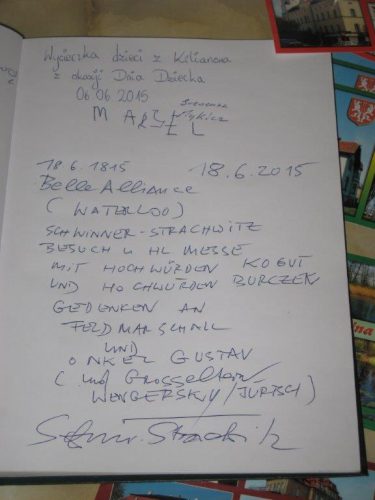 Wycieczka dzieci z Kilianowa
z okazji Dnia Dziecka
06.06.2015
MARCEL
18.6.1815 18.6.2015
Belle Alliance
(WATERLOO)
SCHWINNER-STRACHWITZ
BESUCH u HL. MESSE
MIT HOCHWÜRDEN KOGUT
UND HOCHWÜRDEN BURCZEK
GEDENKEN AN
FELDMARSCHALL
UND
ONKEL GUSTAV
(und Grosseltern
WENGERSKY/JÜRTSCH)